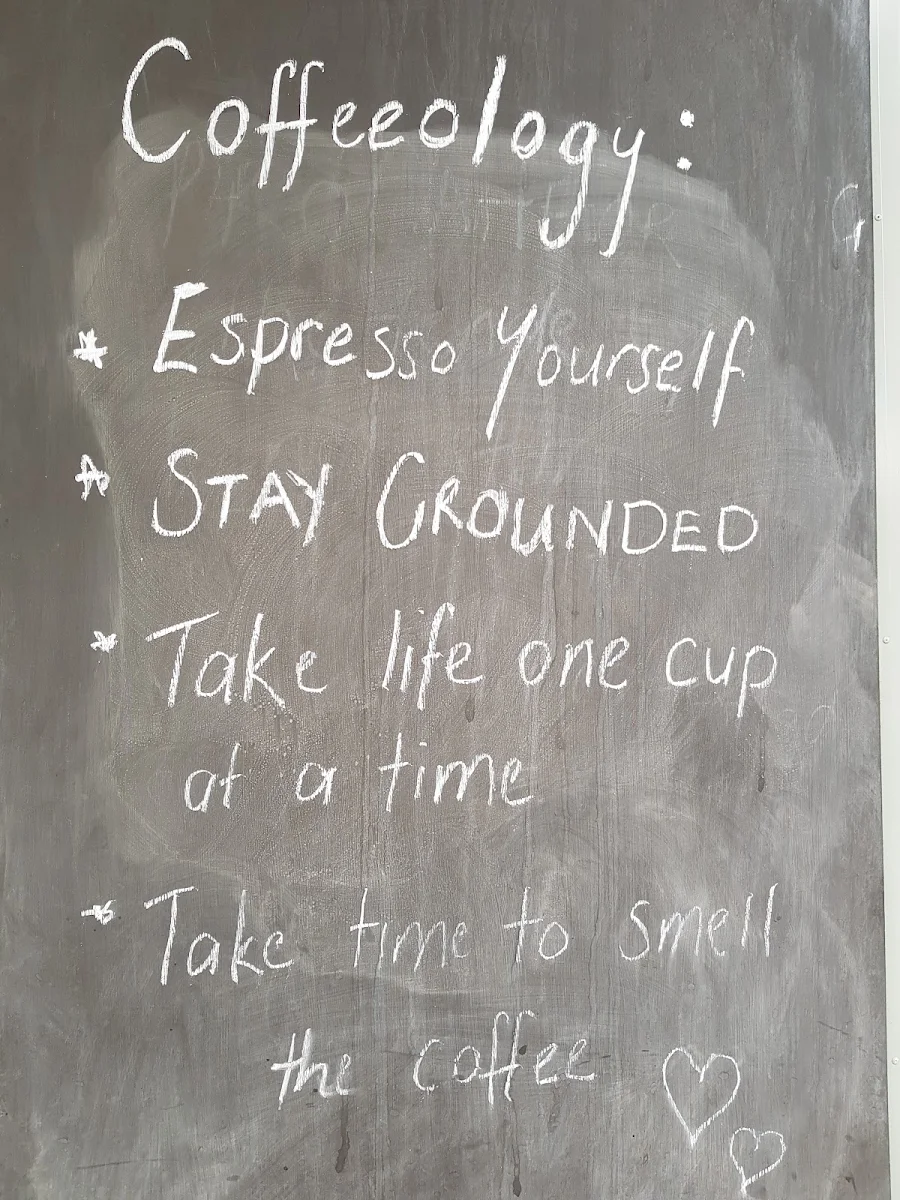 Coffeeology:
* Espresso Yourself
* STAY GROUNDED
* Take life one cup
at a time
* Take time to smell
the coffee